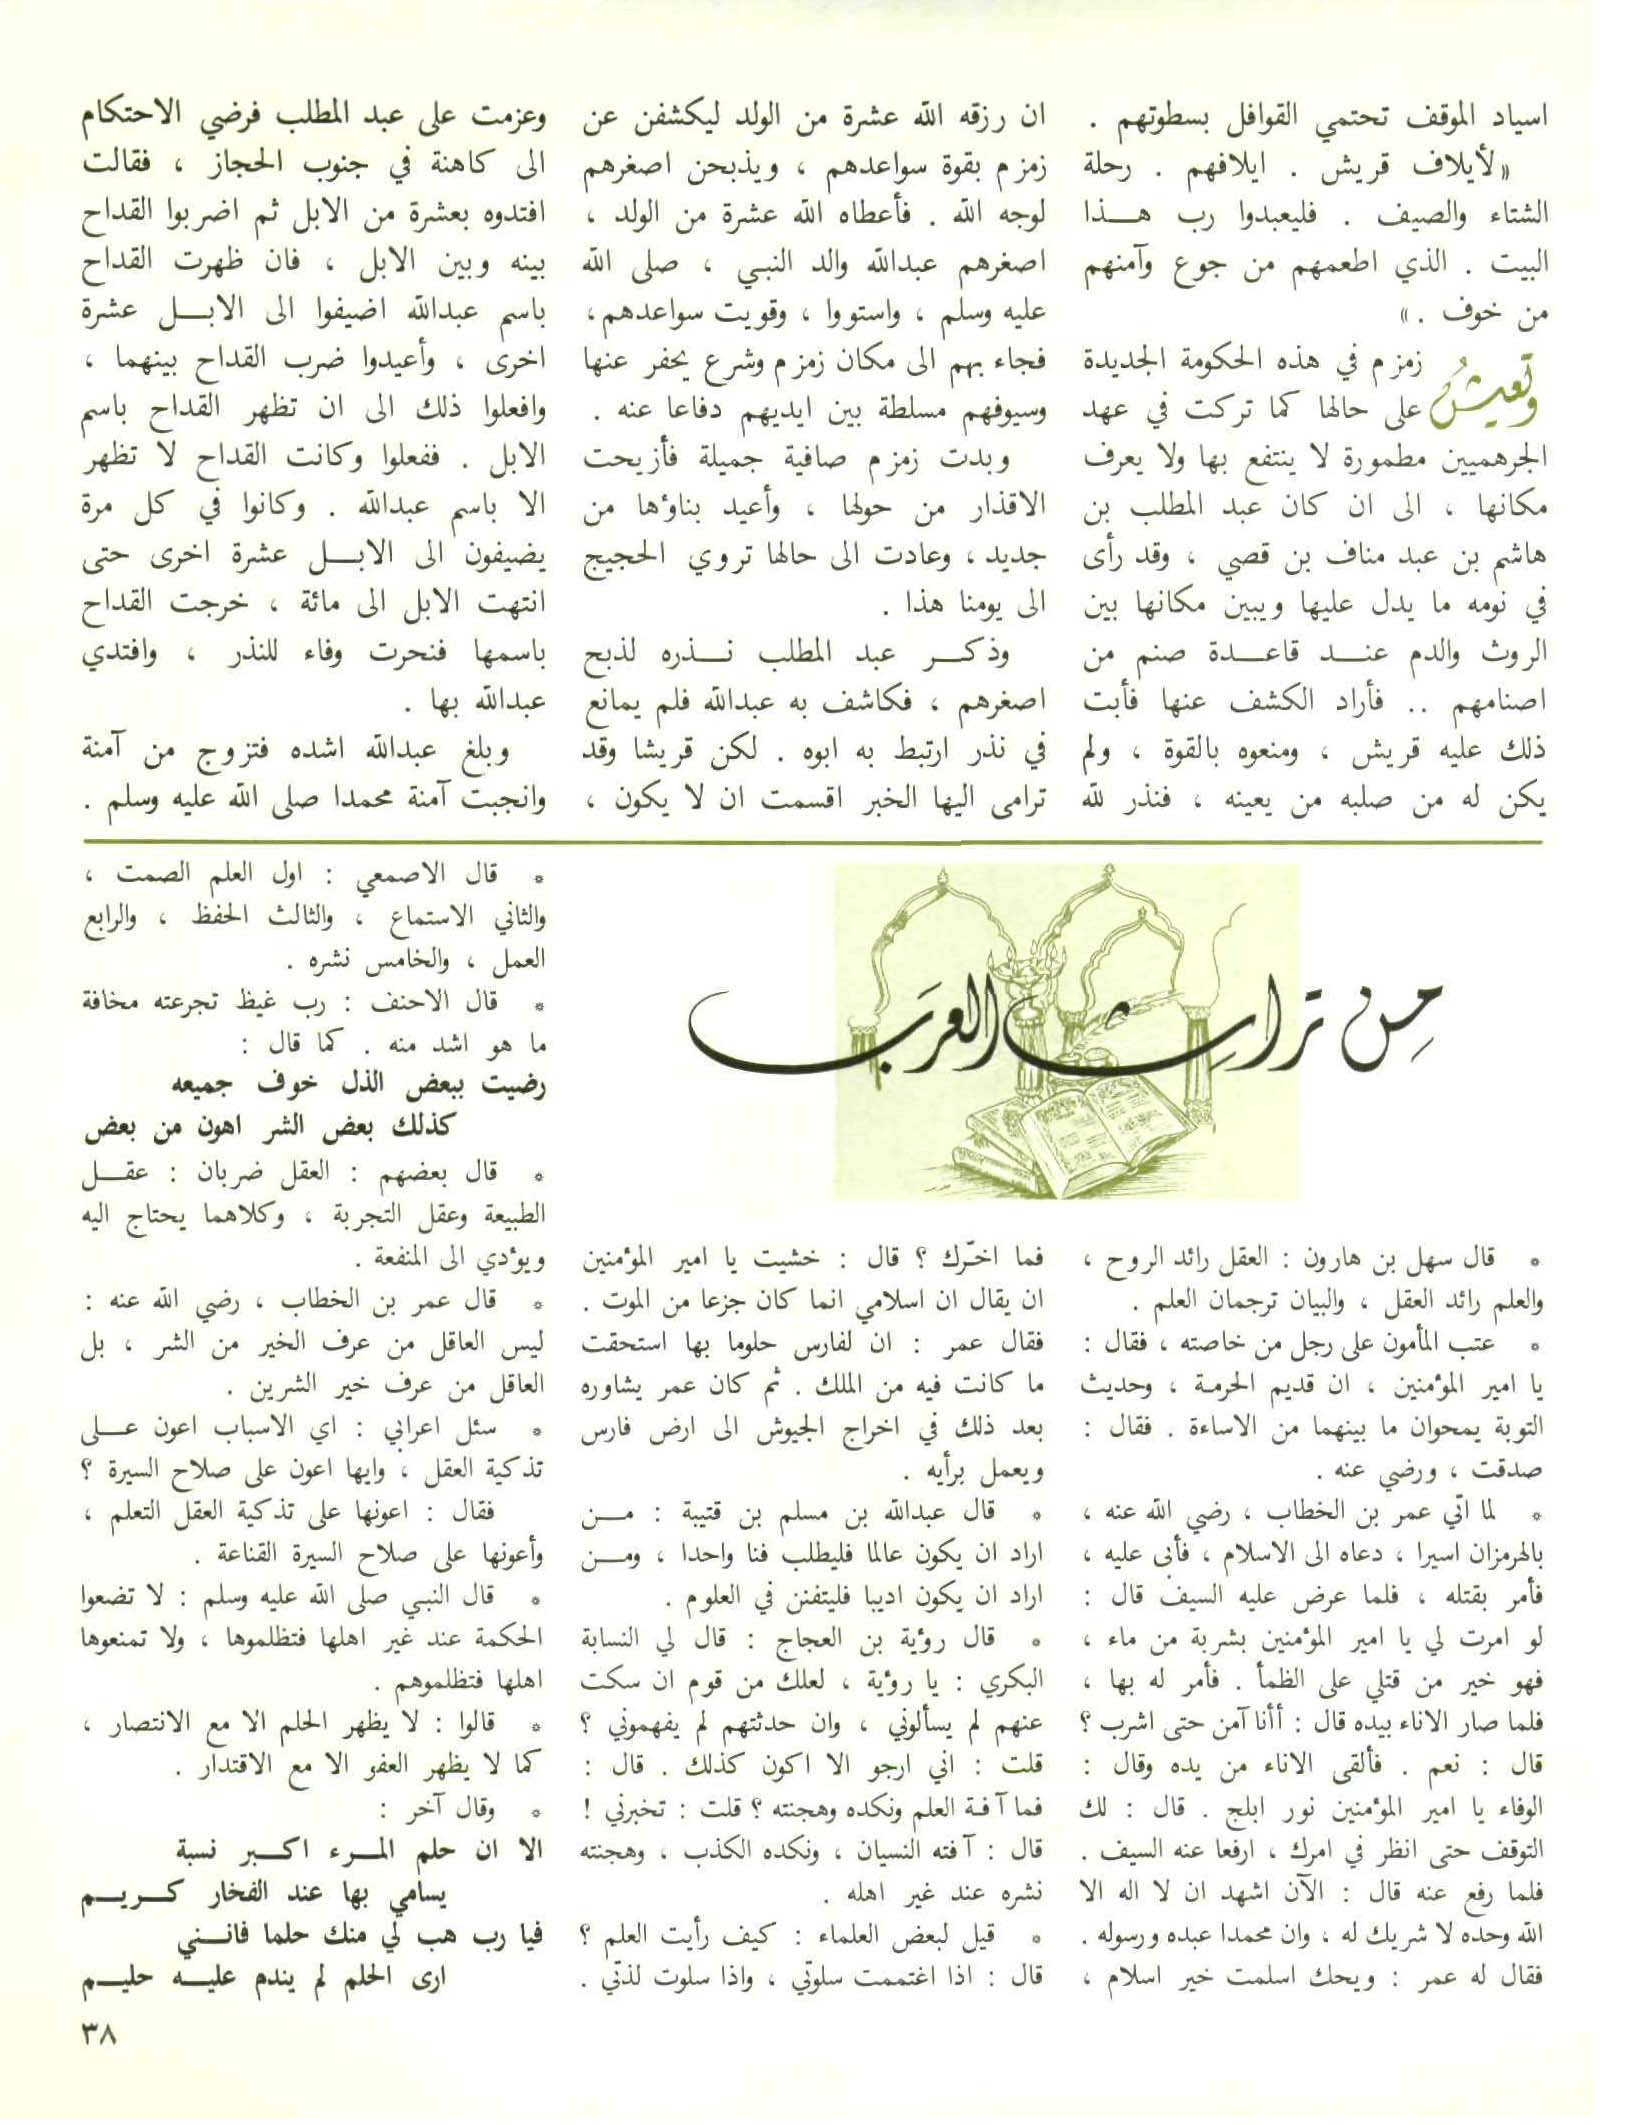 اسياد الموقف تحتمي القوافل بسطوتهم .
«لأيلاف قريش . ايلافهم . رحلة
الشتاء والصيف . فليعبدوا رب هـذا
البيت . الذي اطعمهم من جوع وآمنهم
من خوف . »
وتعيشُ زمزم في هذه الحكومة الجديدة
على حالها كما تركت في عهد
الجرهميين مطمورة لا ينتفع بها ولا يعرف
مكانها ، الى ان كان عبد المطلب بن
هاشم بن عبد مناف بن قصي ، وقد رأى
في نومه ما يدل عليها ويبين مكانها بين
الروث والدم عنـد قاعـدة صنم من
اصنامهم .. فأراد الكشف عنها فأبت
ذلك عليه قريش ، ومنعوه بالقوة ، ولم
يكن له من صلبه من يعينه ، فنذر لله
ان رزقه الله عشرة من الولد ليكشفن عن
زمزم بقوة سواعدهم ، ويذبحن اصغرهم
لوجه الله . فأعطاه الله عشرة من الولد ،
اصغرهم عبدالله والد النبي ، صلى الله
عليه وسلم ، واستووا ، وقويت سواعدهم،
فجاء بهم الى مكان زمزم وشرع يحفر عنها
وسيوفهم مسلطة بين ايديهم دفاعا عنه .
وبدت زمزم صافية جميلة فأزيحت
الاقذار من حولها ، وأعيد بناؤها من
جديد ، وعادت الى حالها تروي الحجيج
الى يومنا هذا .
وذكـر عبد المطلب نـذره لذبح
اصغرهم ، فكاشف به عبدالله فلم يمانع
في نذر ارتبط به ابوه . لكن قريشا وقد
ترامى اليها الخبر اقسمت ان لا يكون ،
وعزمت على عبد المطلب فرضي الاحتكام
الى كاهنة في جنوب الحجاز ، فقالت
افتدوه بعشرة من الابل ثم اضربوا القداح
بينه وبين الابل ، فان ظهرت القداح
باسم عبدالله اضيفوا الى الابـل عشرة
اخرى ، وأعيدوا ضرب القداح بينهما ،
وافعلوا ذلك الى ان تظهر القداح باسم
الابل . ففعلوا وكانت القداح لا تظهر
الا باسم عبدالله . وكانوا في كل مرة
يضيفون الى الابـل عشرة اخرى حتى
انتهت الابل الى مائة ، خرجت القداح
باسمها فنحرت وفاء للنذر ، وافتدي
عبدالله بها .
وبلغ عبدالله اشده فتزوج من آمنة
وانجبت آمنة محمدا صلى الله عليه وسلم .
مِن تراثِ العرَب
* قال سهل بن هارون : العقل رائد الروح ،
والعلم رائد العقل ، والبيان ترجمان العلم .
* عتب المأمون على رجل من خاصته ، فقال :
يا امير المؤمنين ، ان قديم الحرمة ، وحديث
التوبة يمحوان ما بينهما من الاساءة . فقال :
صدقت ، ورضي عنه .
* لما اتي عمر بن الخطاب ، رضي الله عنه ،
بالهرمزان اسيرا ، دعاه الى الاسلام ، فأبى عليه ،
فأمر بقتله ، فلما عرض عليه السيف قال :
لو امرت لي يا امير المؤمنين بشربة من ماء ،
فهو خير من قتلي على الظمأ . فأمر له بها ،
فلما صار الاناء بيده قال : أأنا آمن حتى اشرب ؟
قال : نعم . فألقى الاناء من يده وقال :
الوفاء يا امير المؤمنين نور ابلج . قال : لك
التوقف حتى انظر في امرك ، ارفعا عنه السيف .
فلما رفع عنه قال : الآن اشهد ان لا اله الا
الله وحده لا شريك له ، وان محمدا عبده ورسوله .
فقال له عمر : ويحك اسلمت خير اسلام ،
فما اخّرك ؟ قال : خشيت يا امير المؤمنين
ان يقال ان اسلامي انما كان جزعا من الموت .
فقال عمر : ان لفارس حلوما بها استحقت
ما كانت فيه من الملك . ثم كان عمر يشاوره
بعد ذلك في اخراج الجيوش الى ارض فارس
ويعمل برأيه .
* قال عبدالله بن مسلم بن قتيبة : مـن
اراد ان يكون عالما فليطلب فنا واحدا ، ومـن
اراد ان يكون اديبا فليتفنن في العلوم .
* قال رؤية بن العجاج : قال لي النسابة
البكري : يا رؤية ، لعلك من قوم ان سكت
عنهم لم يسألوني ، وان حدثتهم لم يفهموني ؟
قلت : اني ارجو الا اكون كذلك . قال :
فما آفة العلم ونكده وهجنته ؟ قلت : تخبرني !
قال : آفته النسيان ، ونكده الكذب ، وهجنته
نشره عند غير اهله .
* قيل لبعض العلماء : كيف رأيت العلم ؟
قال : اذا اغتممت سلوتي ، واذا سلوت لذتي .
* قال الاصمعي : اول العلم الصمت ،
والثاني الاستماع ، والثالث الحفظ ، والرابع
العمل ، والخامس نشره .
* قال الاحنف : رب غيظ تجرعته مخافة
ما هو اشد منه . كما قال :
رضيت ببعض الذل خوف جميعه
كذلك بعض الشر اهون من بعض
* قال بعضهم : العقل ضربان : عقـل
الطبيعة وعقل التجربة ، وكلاهما يحتاج اليه
ويؤدي الى المنفعة .
* قال عمر بن الخطاب ، رضي الله عنه :
ليس العاقل من عرف الخير من الشر ، بل
العاقل من عرف خير الشرين .
* سئل اعرابي : اي الاسباب اعون عـلى
تذكية العقل ، وايها اعون على صلاح السيرة ؟
فقال : اعونها على تذكية العقل التعلم ،
وأعونها على صلاح السيرة القناعة .
* قال النبي صلى الله عليه وسلم : لا تضعوا
الحكمة عند غير اهلها فتظلموها ، ولا تمنعوها
اهلها فتظلموهم .
* قالوا : لا يظهر الحلم الا مع الانتصار ،
كما لا يظهر العفو الا مع الاقتدار .
* وقال آخر :
الا ان حلم المـرء اكـبر نسبة
يسامي بها عند الفخار كـريـم
فيا رب هب لي منك حلما فانـني
ارى الحلم لم يندم عليـه حليـم
٣٨